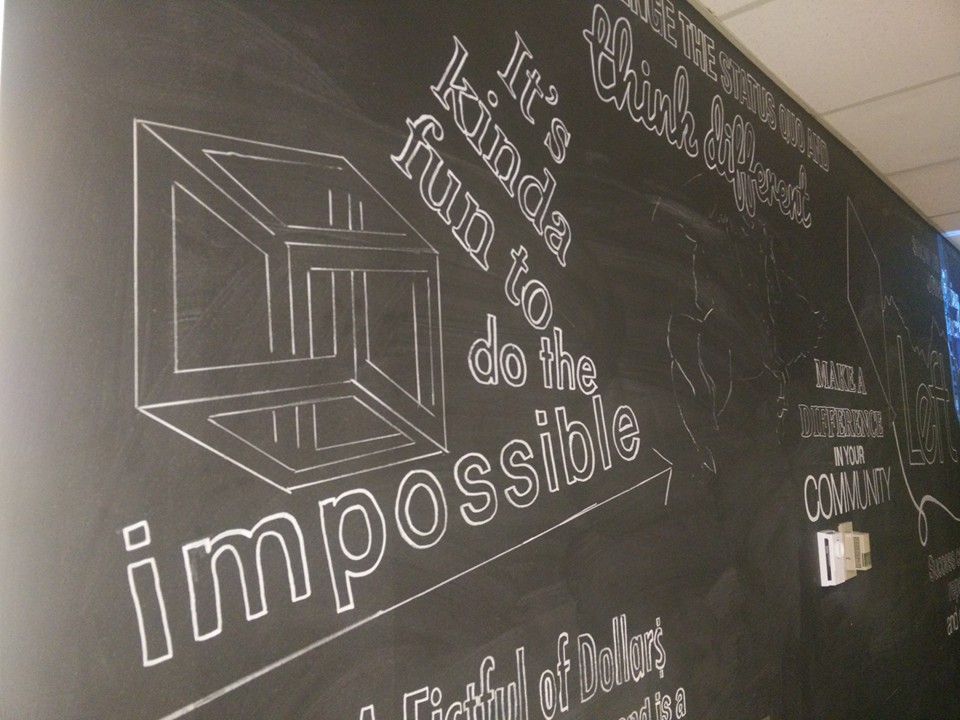 THE STATUS QUO AND
think different
It's
kinda
fun to
do the
impossible
MAKE A
DIFFERENCE
IN YOUR
COMMUNITY
Left
Success
and
A Fistful of Dollar$
and is a